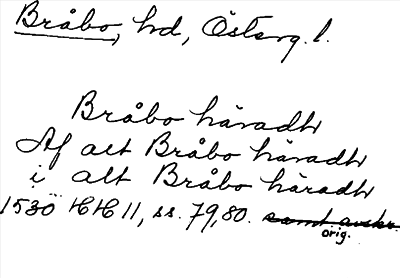 Bråbo, hd, Österg. l.
Bråbo häradh
Af alt Bråbo häradh
i alt Bråbo häradh
1530 HH 11, ss. 79, 80. samt avskr.
orig.